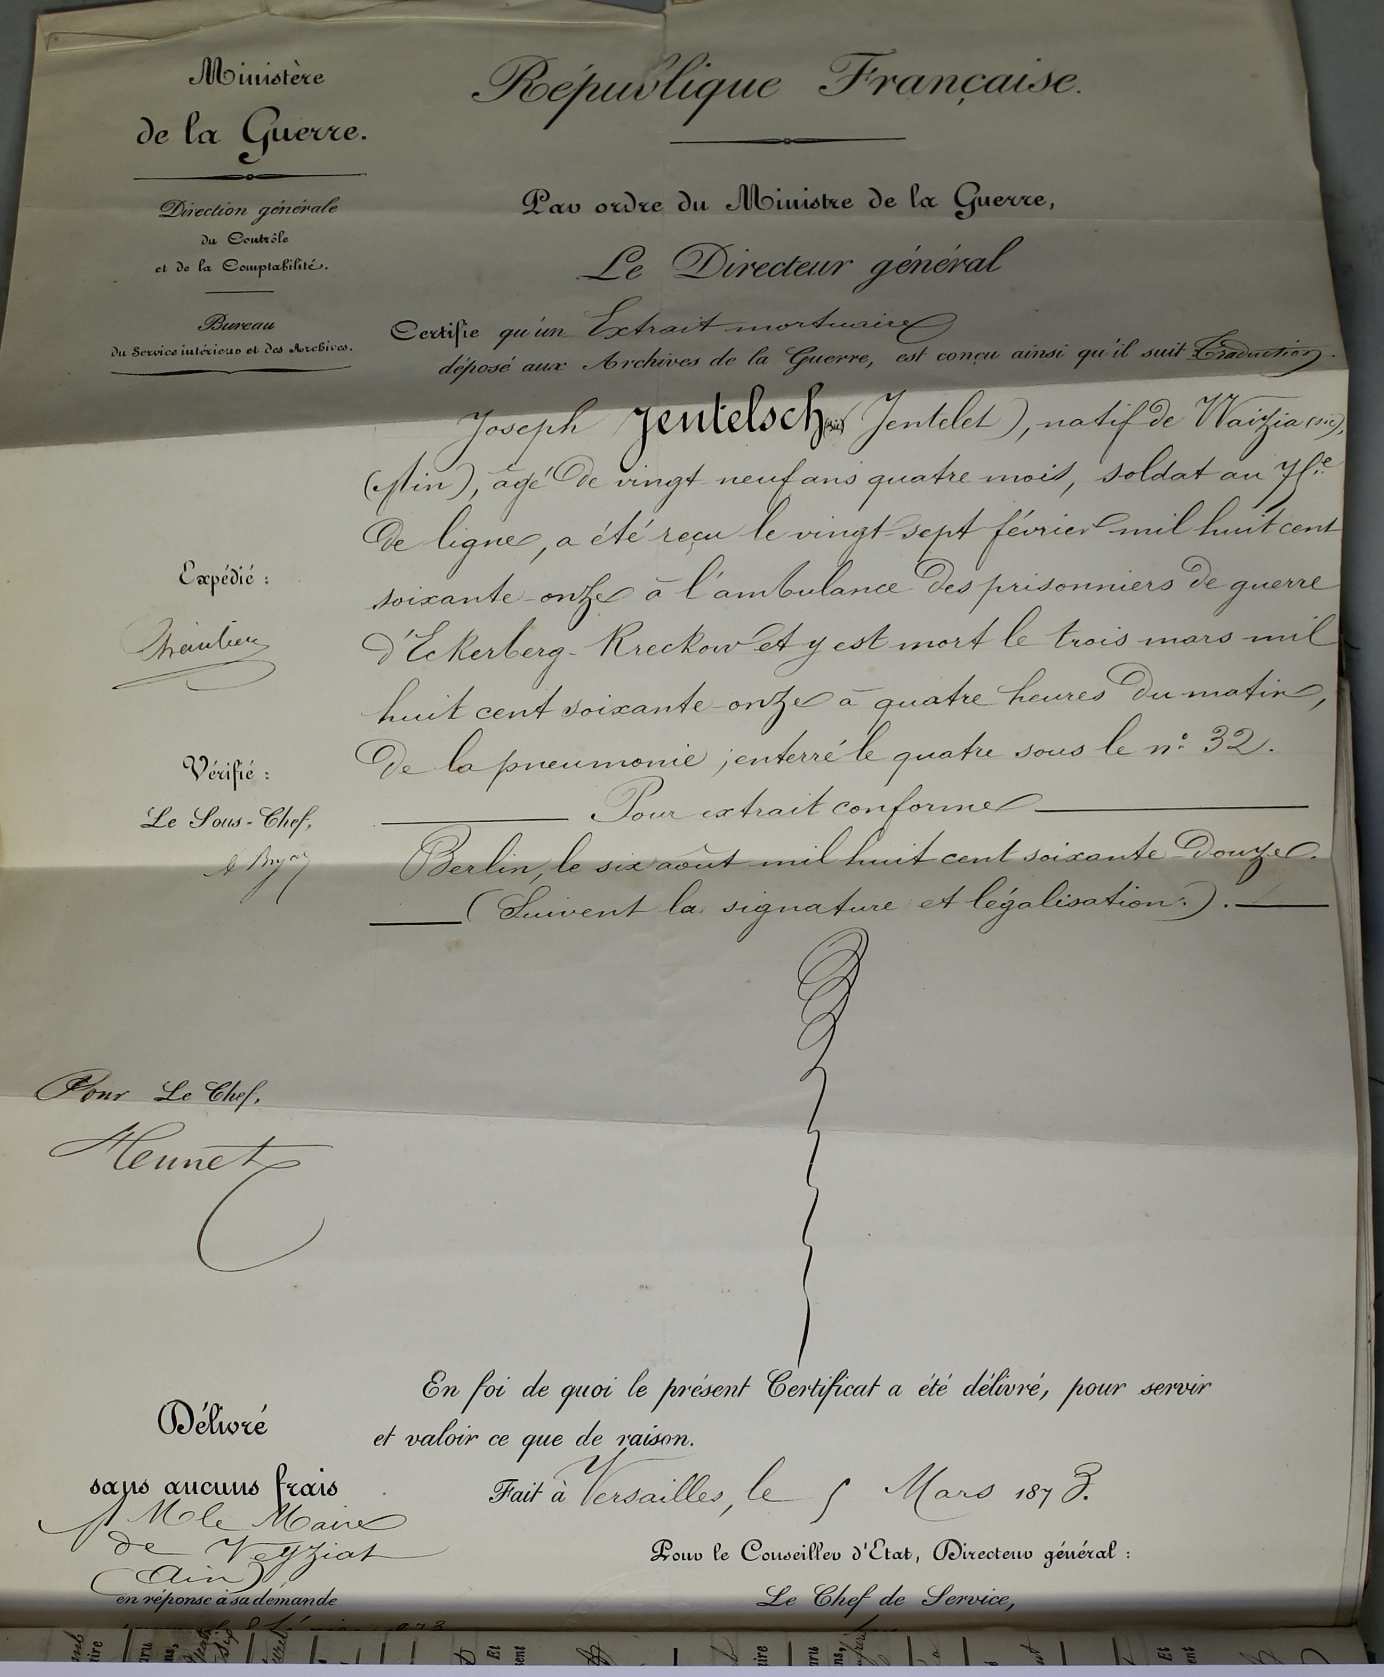 Ministère
de la Guerre.
Direction générale
du Contrôle
et de la Comptabilité.
Bureau
du Service intérieur et des Archives.
République Française.
Par ordre du Ministre de la Guerre,
Le Directeur général
Certifie qu'un Extrait mortuaire
déposé aux Archives de la Guerre, est conçu ainsi qu'il suit Traduction.
Joseph Jentelsch (sic) Jentelet), natif de Waizia (sic),
(Ain), âgé de vingt neuf ans quatre mois, soldat au
de ligne, a été reçu le vingt-sept février mil huit cent
soixante-onze à l'ambulance des prisonniers de guerre
d'Eckerberg-Kreckow et y est mort le trois mars mil
huit cent soixante-onze à quatre heures du matin,
de la pneumonie ; enterré le quatre sous le n° 32.
Pour extrait conforme
Berlin, le six août mil huit cent soixante-douze.
(Suivent la signature et légalisation.).
Expédié :
Vérifié :
Le Sous-Chef,
Pour Le Chef,
Hennet
En foi de quoi le présent Certificat a été délivré, pour servir
et valoir ce que de raison.
Fait à Versailles, le 5 Mars 1873.
Pour le Conseiller d'Etat, Directeur général :
Le Chef de Service,
Délivré
sans aucuns frais
à M le Maire
de Veyziat
(Ain)
en réponse à sa demande